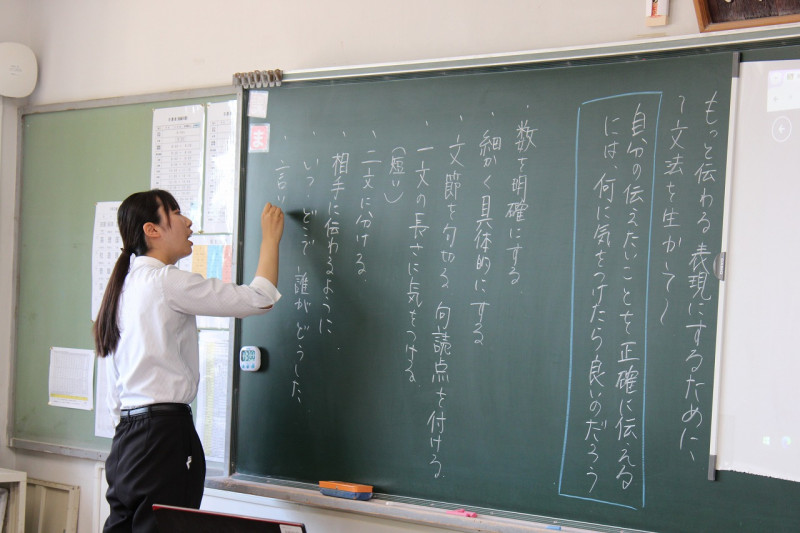 もっと伝わる表現にするために、
〜文法を生かして〜
自分の伝えたいことを正確に伝える
には、何に気をつけたら良いのだろう
・数を明確にする
・細かく具体的にする
・文節を句切る 句読点を付ける
・一文の長さに気をつける
(短い)
・二文に分ける
・相手に伝わるように
・いつ どこで 誰が どうした
・言い
ま